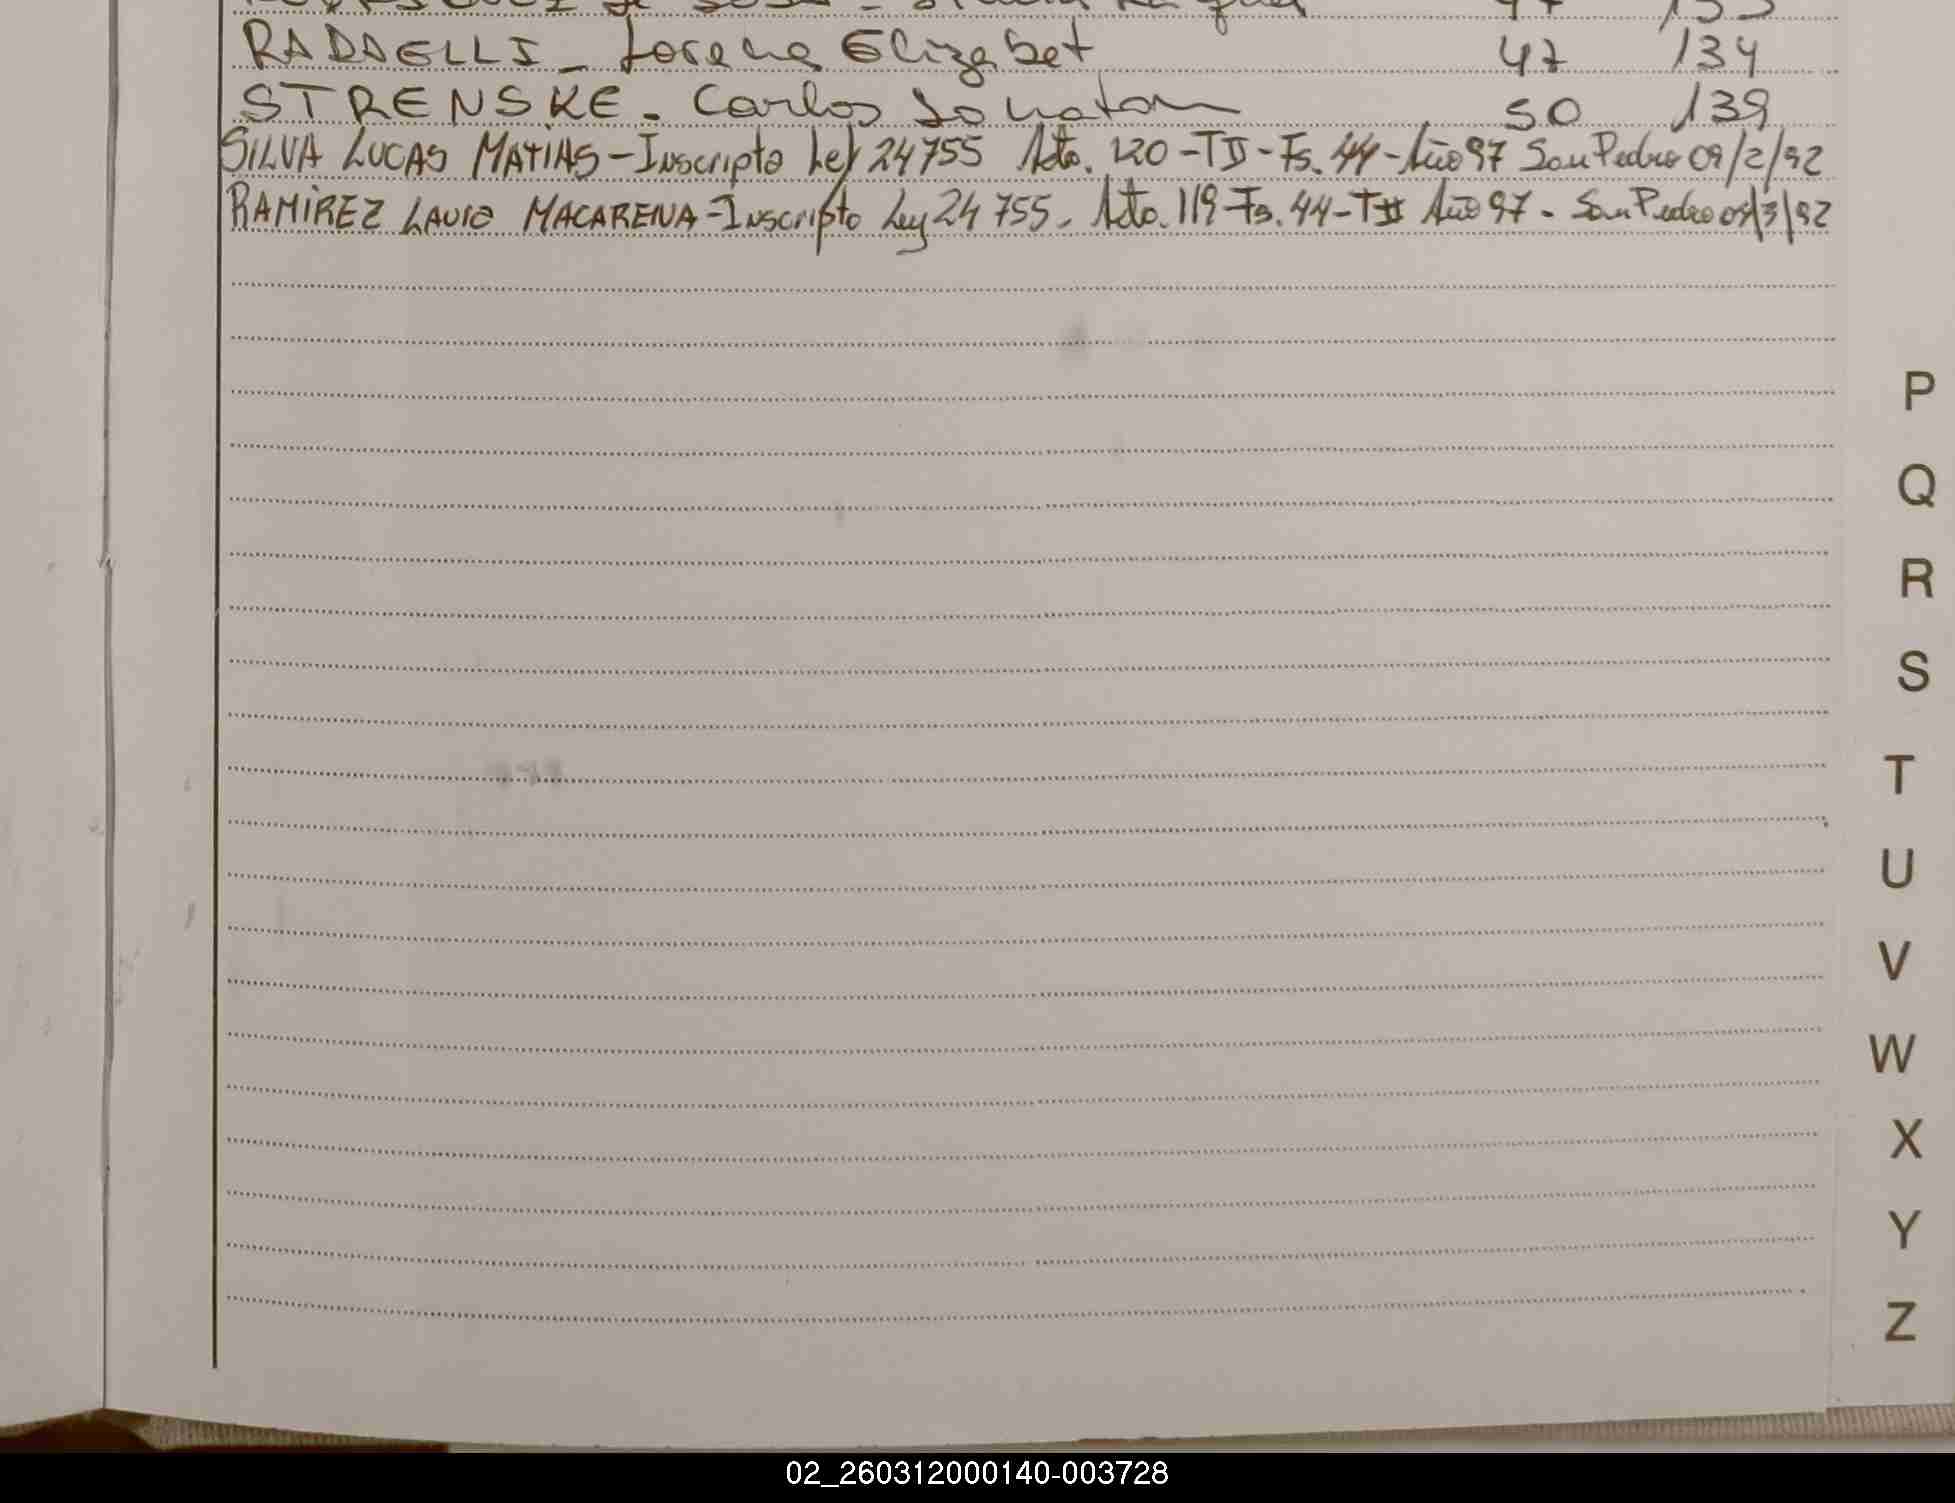 RADAELLI - Lorena Elizabet 47 134
STRENSKE. Carlos Jonatan 50 139
SILVA LUCAS MATIAS - Inscripto Ley 24755 Acta. 120 - TII - Fs. 44 - Año 97 San Pedro 09/2/92
RAMIREZ LAURA MACARENA - Inscripto Ley 24755. Acta. 119 Fs. 44 - TII Año 97. San Pedro /3/92
P
Q
R
S
T
U
V
W
X
Y
Z
02_260312000140-003728